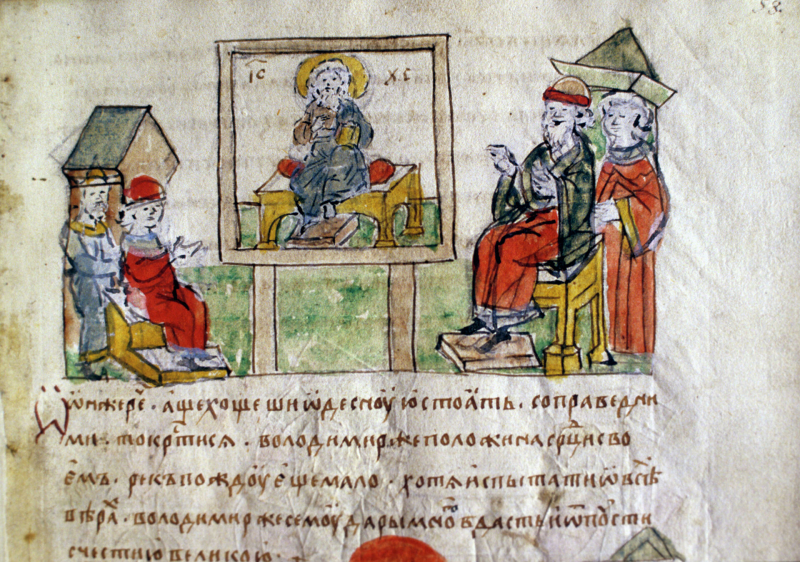 58.
І҃С Х҃С
Ѡ́нжерече́ · а҆щехощешиѡ҆десноую҆стоа҆ть · соправедни
ми · токр҃тися · володимирже положина ср҃цисво
е҆мъ · рекъпождоу е҆щемало · хотя и҆спытати ѡ҆всѣ
вѣра · володимиржесемоу дарымно вдасть и҆ѿпости
счестию великою ·